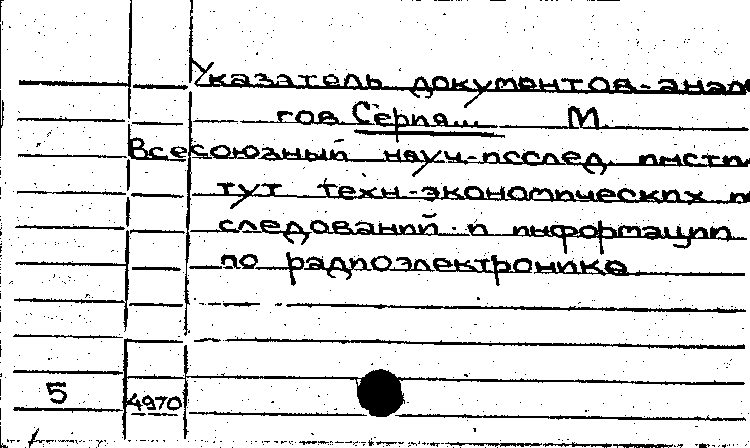 Указатель документов-анало
гов Серия... М.
Всесоюзный науч.-исслед. инсти
тут техн.-экономических и
следований и информации
по радиоэлектронике
5 4970